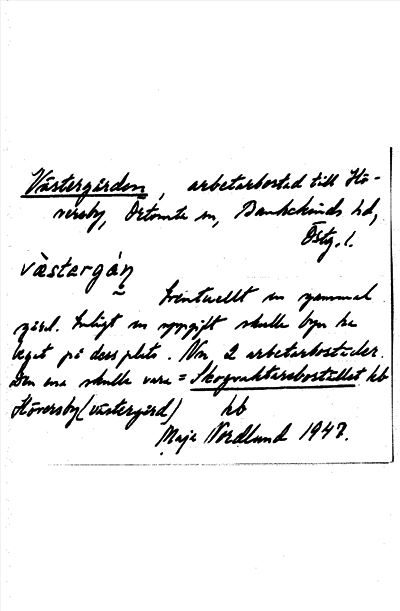 Västergården, arbetarbostad till Hö-
versby, Örtomta sn, Bankekinds hd,
Östg. l.
västergáṇ
Eventuellt en gammal
gård. Enligt en uppgift skulle byn ha
legat på dess plats. Nu 2 arbetarbostäder.
Den ena skulle vara = Skogvaktarebostället hb
Höversby (västergård) hb
Maja Nordlund 1947.